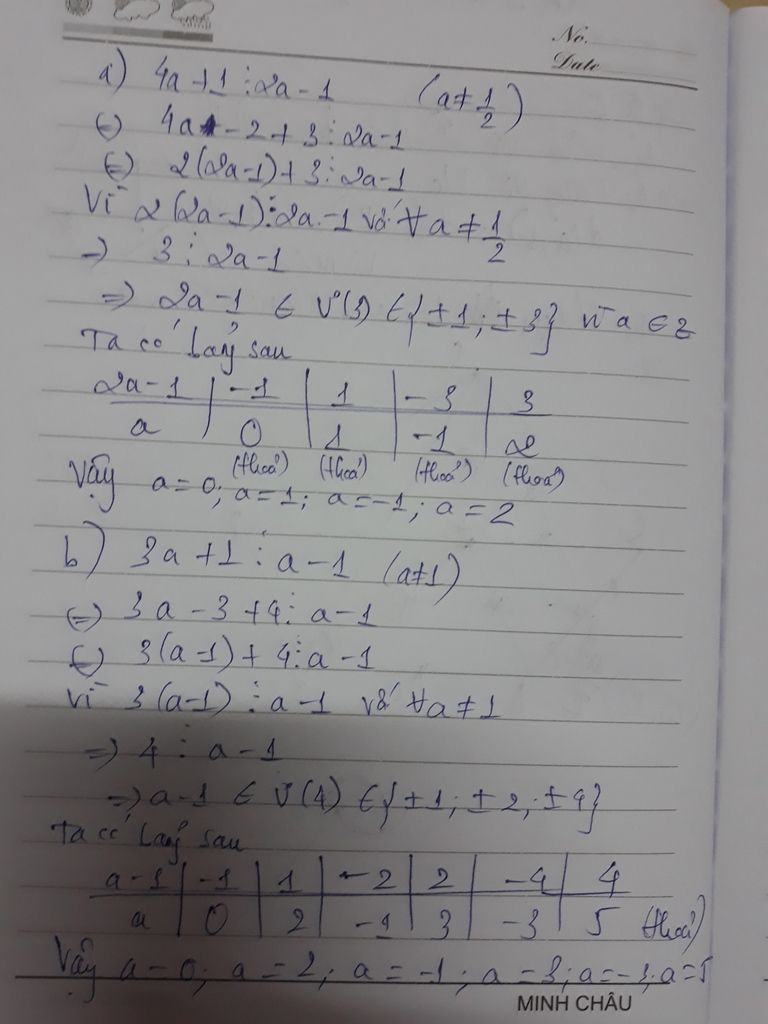 No.
Date
a) 4a+1 ⋮ 2a-1 (a≠1/2)
(=) 4a - 2 + 3 ⋮ 2a-1
(=) 2(2a-1)+3 ⋮ 2a-1
Vì 2(2a-1) ⋮ 2a-1 với ∀a ≠ 1/2
=) 3 ⋮ 2a-1
=) 2a-1 ∈ Ư(3) ∈{±1; ±3} vì a ∈ Z
Ta có bảng sau
2a-1 | -1 | 1 | -3 | 3
a | 0 | 1 | -1 | 2
(thoả) (thoả) (thoả) (thoả)
Vậy a=0; a=1; a=-1; a=2
b) 3a+1 ⋮ a-1 (a≠1)
(=) 3a-3+4 ⋮ a-1
(=) 3(a-1)+4 ⋮ a-1
Vì 3(a-1) ⋮ a-1 với ∀a≠1
=) 4 ⋮ a-1
=) a-1 ∈ Ư(4) ∈{±1; ±2; ±4}
Ta có bảng sau
a-1 | -1 | 1 | -2 | 2 | -4 | 4
a | 0 | 2 | -1 | 3 | -3 | 5 (thoả)
Vậy a=0; a=2; a=-1; a=3; a=-3; a=5
MINH CHÂU